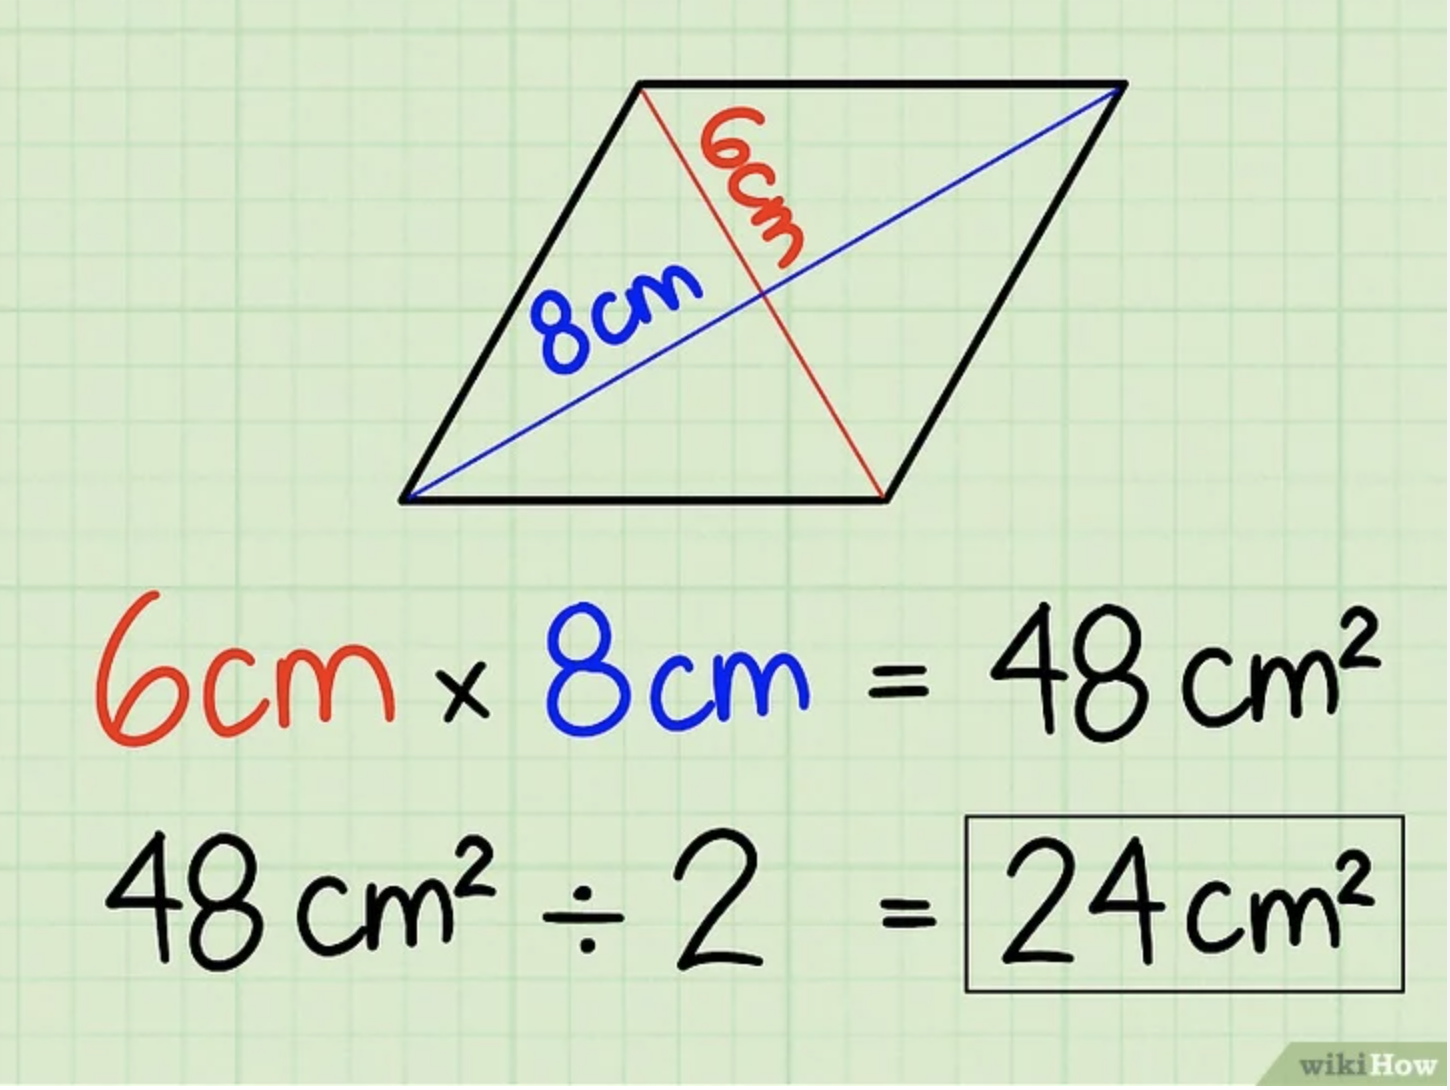 6cm
8cm
6cm x 8cm = 48 cm²
48 cm² ÷ 2 = 24 cm²
wikiHow